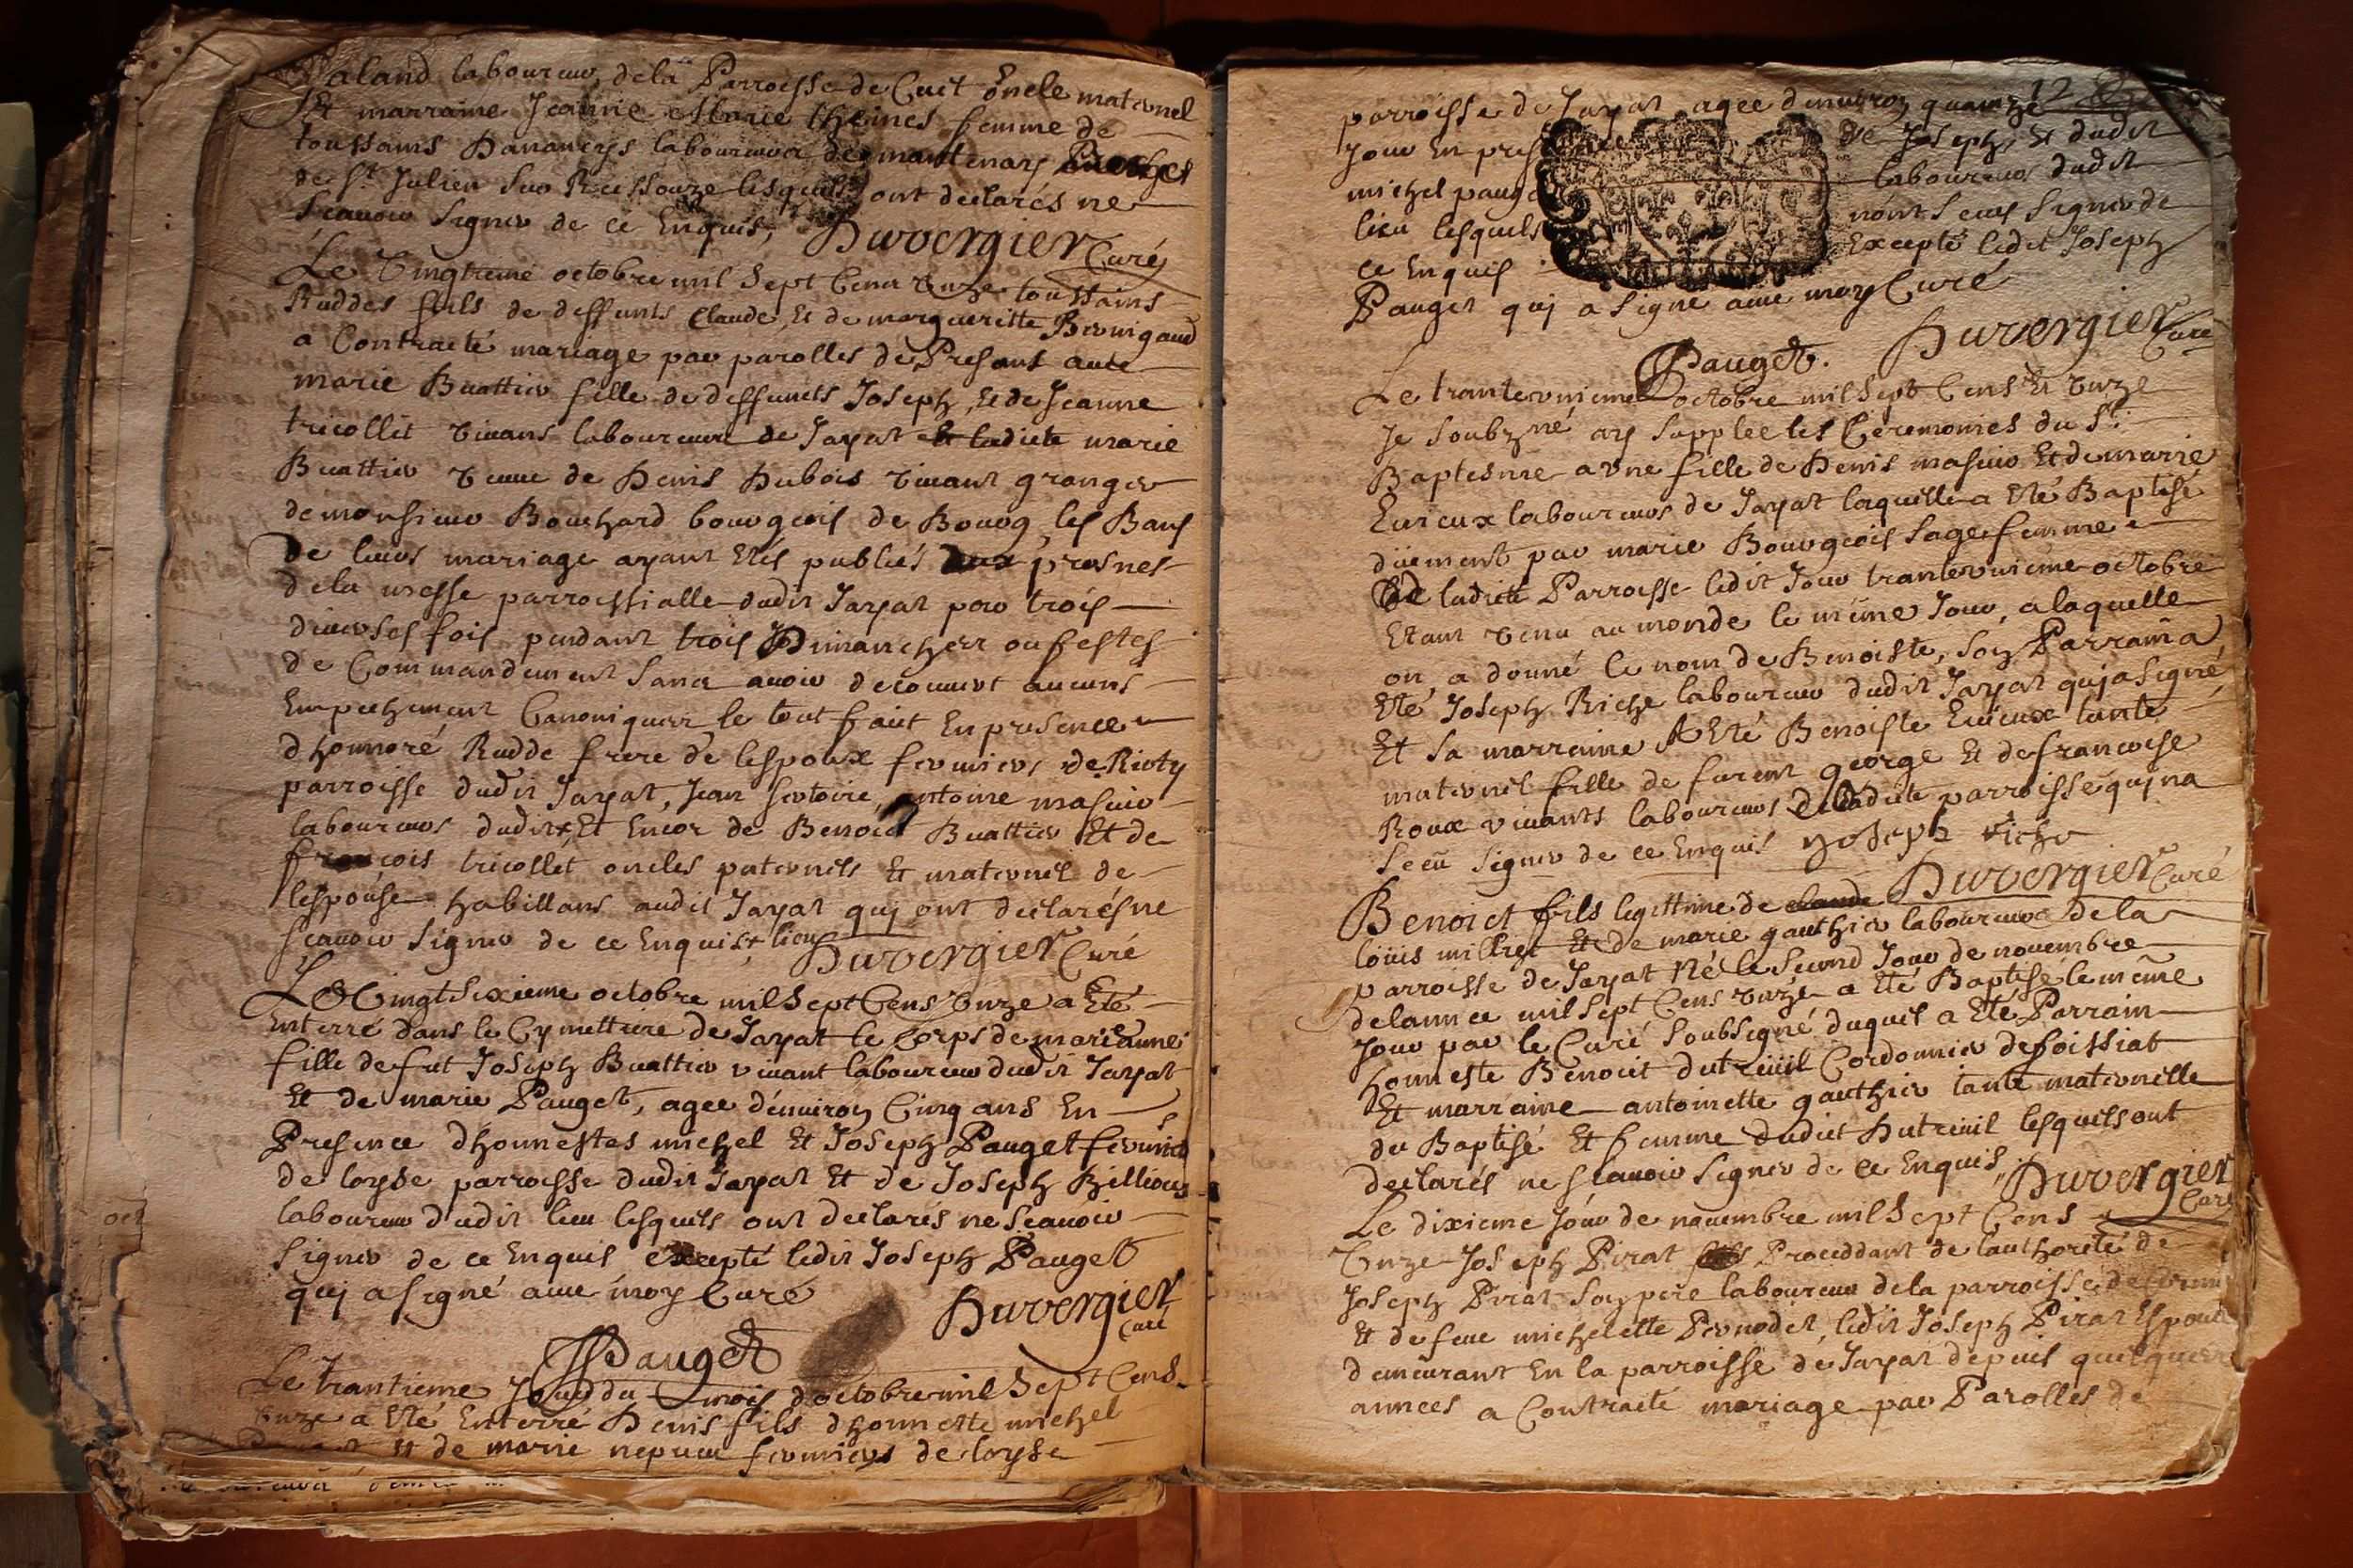 aland laboureur dela Parroisse de Cuit oncle maternel
Et marraine Jeanne Marie theines femme de
toussains Dananeys laboureur de mantenay
de St Julien sur Reissouze lesquels ont declarés ne
scauoir signer de ce Enquis, Duvergier Curé
Le Vingtieme octobre mil sept Cens Vnze toussains
Ruddes fils de deffunts Claude, Et de marguerite
a Contracté mariage par parolles de Presant auec
marie Buattier fille de deffuncts Joseph, Et de Jeanne
tricollet viuans laboureurs de Jayat ladicte marie
Buattier veuue de Denis Dubois viuant granger
de monsieur Bouchard bourgeois de Bourg, les Bans
de leurs mariage ayant Etés publiés aux prosnes
dela messe parroissialle dudit Jayat par trois
diuerses fois pendant trois Dimanches ou festes
de Commandement sans auoir decouuert aucuns
Empechement Canoniques le tout fait En presence
dhonnoré Rudde frere de lespoux fermiers de Rioty
parroisse dudit Jayat, Jean sertoire, antoine masuir
laboureurs dudit + Et Encor de Benoict Buattier Et de
francois tricollet oncles paternels Et maternel de
lespouse habittans audit Jayat quj ont declarés ne
scauoir signer de ce Enquis + lieu Duvergier Curé
Le Vingt sixieme octobre mil sept Cens Vnze a Eté
Enterré dans le Cymettiere de Jayat le Corps de marieanne
fille de fut Joseph Buattier viuant laboureur dudit Jayat
Et de marie Pauget, agee denuiron Cinq ans En
Presence dhonnestes michel Et Joseph Pauget fermiers
de loyse parroisse dudit Jayat Et de Joseph Billioux
laboureur dudit lieu lesquels ont declarés ne scauoir
signer de ce Enquis excepté ledit Joseph Pauget
quj a signé auec moy Curé
Duvergier
Curé
JPauget
Le trantieme Jour du mois doctobre mil sept Cens
Vnze a Eté Enterré Denis fils dhonneste michel
Et de marie nepueu fermiers de loyse
parroisse de Jayat agee denuiron quainze 12
Jour En presence de Joseph, Et dudit
michel pauget laboureurs dudit
lieu lesquels nont sceus signer de
ce Enquis Excepté ledit Joseph
Pauget quj a signé auec moy Curé
JPauget. Duvergier Curé
Le trantevnieme octobre mil sept Cens Et Vnze
Je soubzné ay supplee les Ceremonies du St.
Baptesme a vne fille de Denis masuir Et de marie
Euieux laboureurs de Jayat laquelle a Eté Baptisé
düement par marie Bourgeois sage femme
de ladicte Parroisse ledit Jour trantevnieme octobre
Etant venu au monde le méme Jour, a laquelle
on a donné le nom de Benoiste, soy Parrain a
Eté Joseph Riche laboureur dudit Jayat quj a signé
Et sa marraine A Eté Benoiste Euieux tante
maternel fille de furent george Et de francoise
Roux viuants laboureurs de ladicte parroisse quj na
sceu signer de ce Enquis Joseph riche
Duvergier Curé
Benoict fils legittime de claude
loüis milliet Et de marie gauthier laboureurs de la
parroisse de Jayat Né le second Jour de nouembre
delannee mil sept Cens Vnze a Eté Baptisé le méme
Jour par le Curé soubsigné duquel a Eté Parrain
honneste Benoict dutreüil Cordonnier de foissiat
Et marraine antoinette gauthier tante maternelle
du Baptisé Et femme dudict Dutreüil lesquels ont
declarés ne scauoir signer de ce Enquis, Duvergier
Curé
Le dixieme Jour de nouembre mil sept Cens
Vnze Joseph Pirat Proceddant de lauthorité de
Joseph Pirat soy pere laboureur dela parroisse de
Et de feue michelette Pernodet, ledit Joseph Pirat Espoux
demeurant En la parroisse de Jayat depuis quelques
annees a Contracté mariage par Parolles de